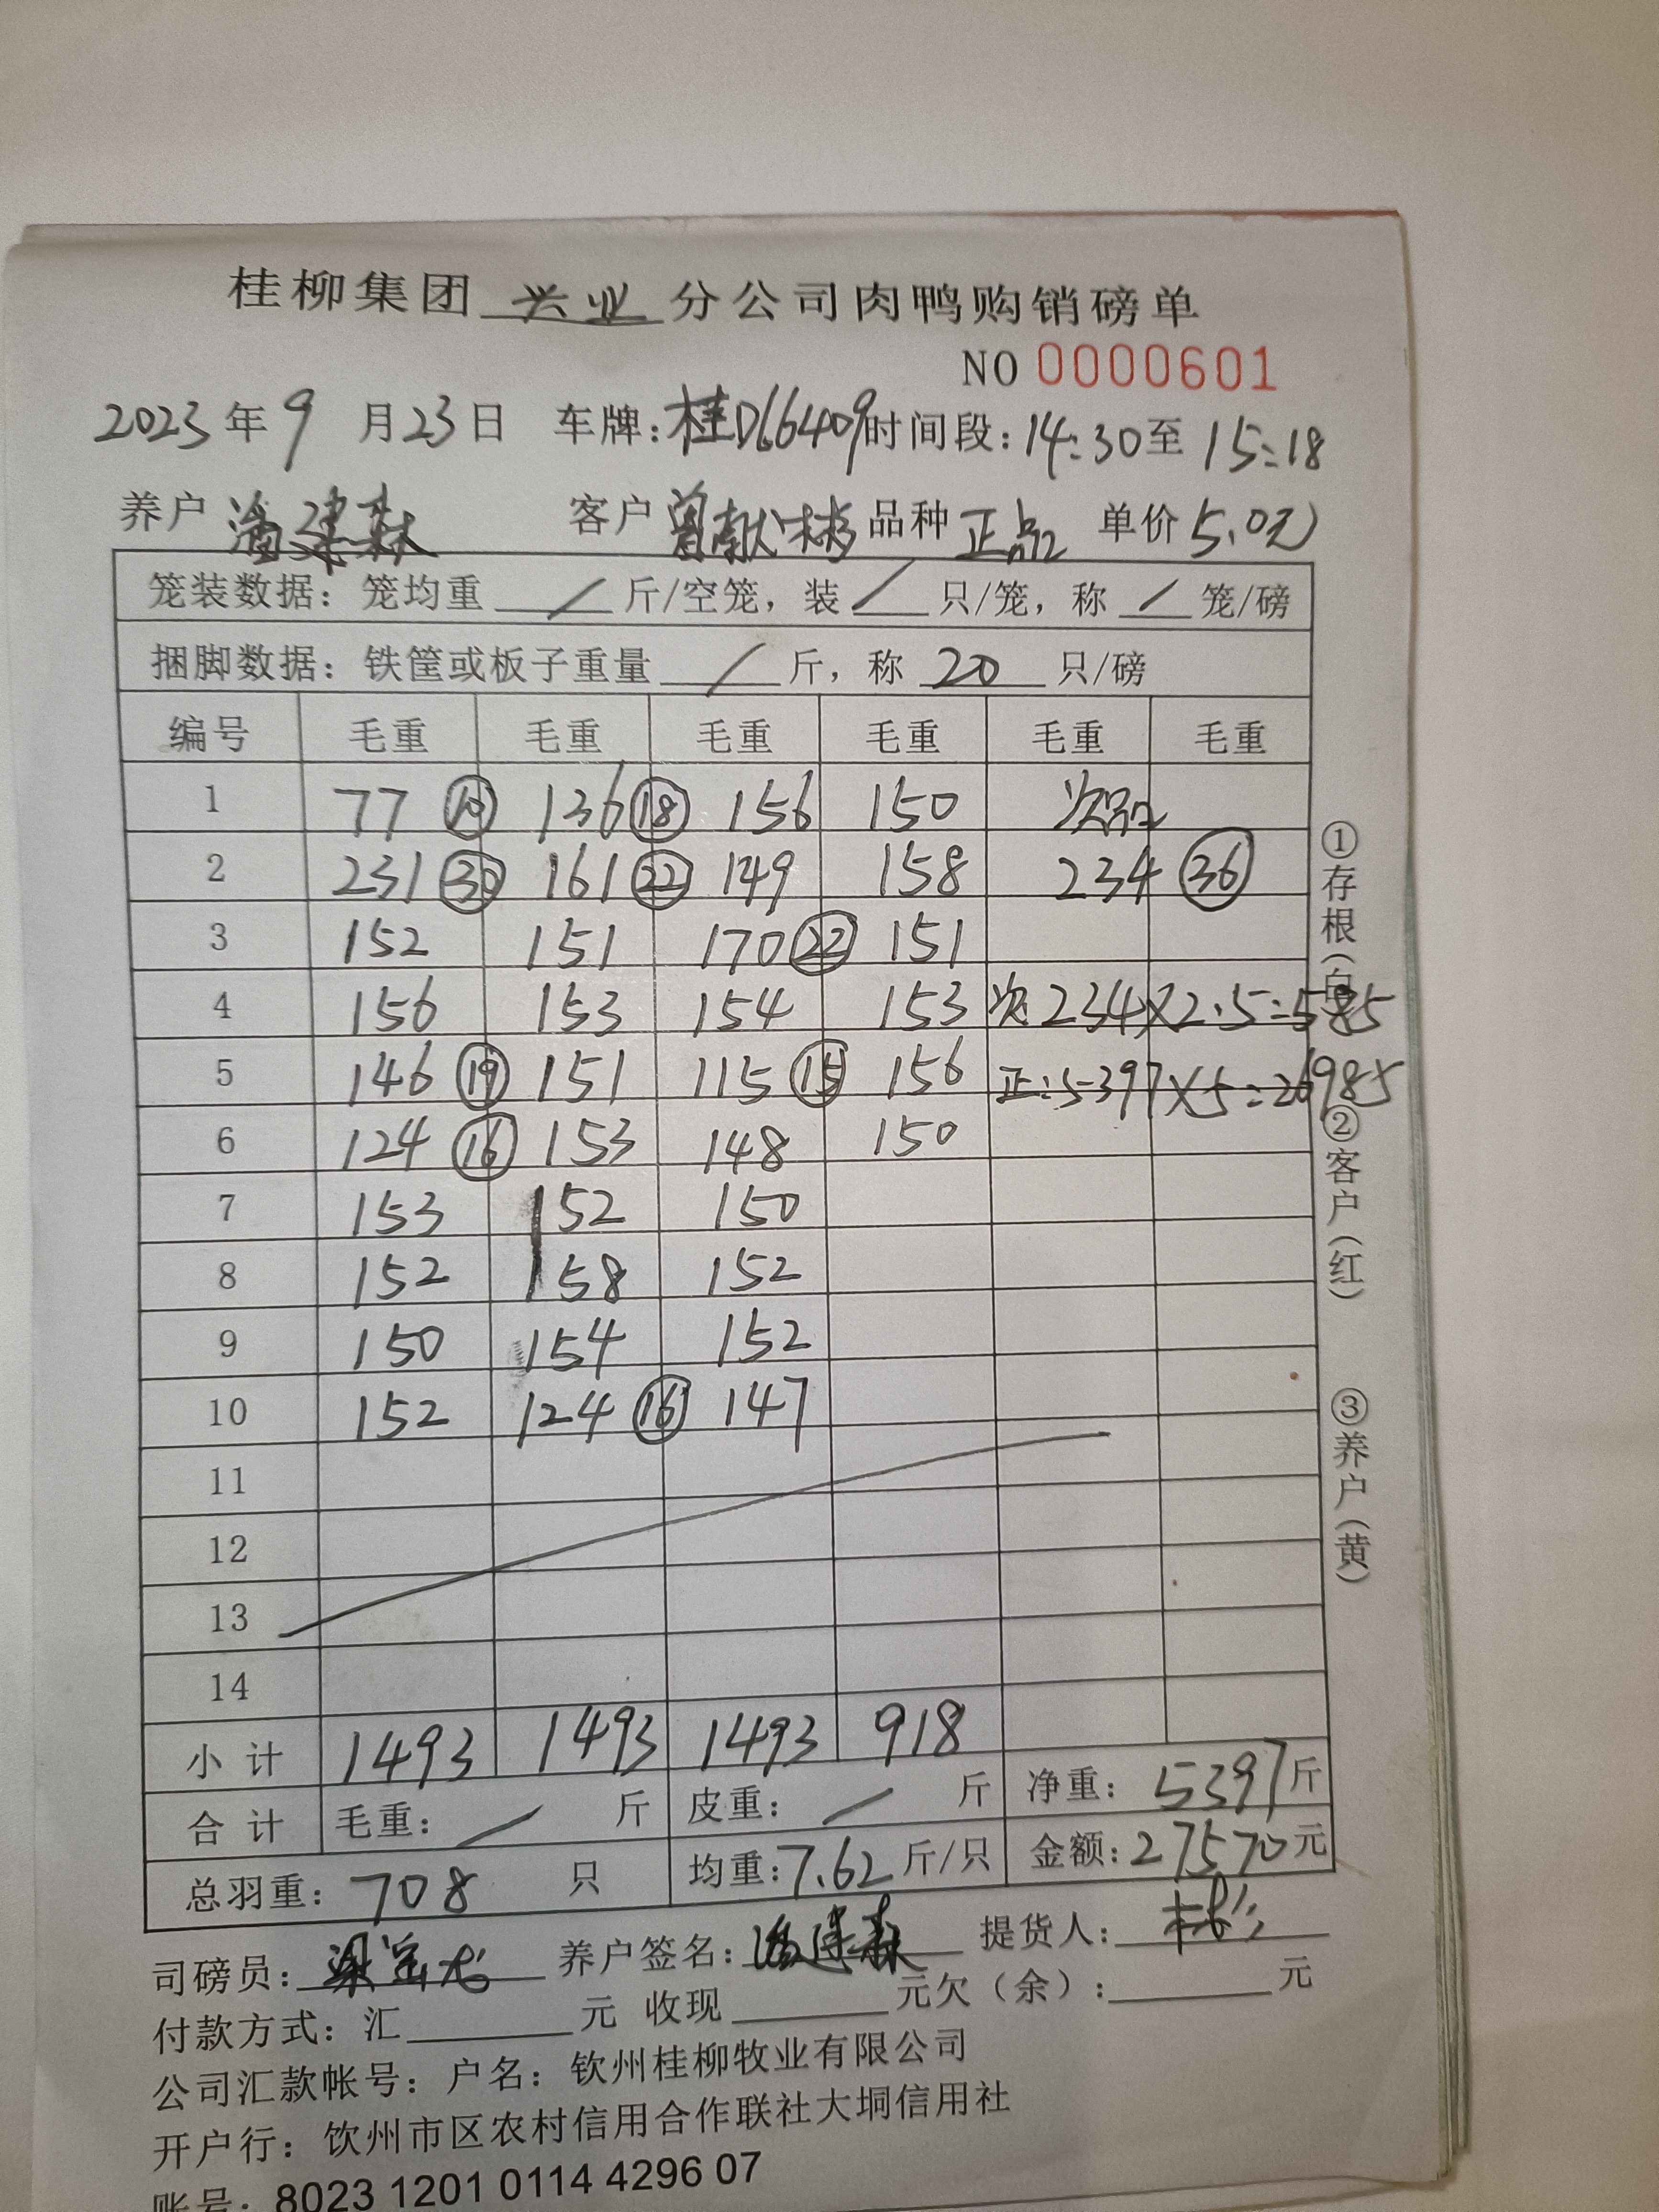 桂柳集团 兴业 分公司肉鸭购销磅单
NO 0000601
2023年9月23日 车牌:桂D66409 时间段:14:30至15:18
养户 潘建森 客户 曾献彬 品种 正品 单价 5.0元
笼装数据:笼均重 / 斤/空笼,装 / 只/笼,称 / 笼/磅
捆脚数据:铁筐或板子重量 / 斤,称 20 只/磅
编号 毛重 毛重 毛重 毛重 毛重 毛重
1 77 ⑩ 136 ⑱ 156 150 次品
2 231 ㉚ 161 ㉒ 149 158 234 ㊱
3 152 151 170 ㉒ 151
4 156 153 154 153 次:234×2.5=585
5 146 ⑲ 151 115 ⑮ 156 正:5397×5=26985
6 124 ⑯ 153 148 150
7 153 152 150
8 152 158 152
9 150 154 152
10 152 124 ⑯ 147
11
12
13
14
小计 1493 1493 1493 918
合计 毛重: / 斤 皮重: / 斤 净重: 5397斤
总羽重: 708 只 均重:7.62斤/只 金额:27570元
司磅员: 养户签名:潘建森 提货人:彬
付款方式:汇 元 收现 元欠(余): 元
公司汇款帐号:户名:钦州桂柳牧业有限公司
开户行:钦州市区农村信用合作联社大垌信用社
账号:8023 1201 0114 4296 07
①存根(白)
②客户(红)
③养户(黄)